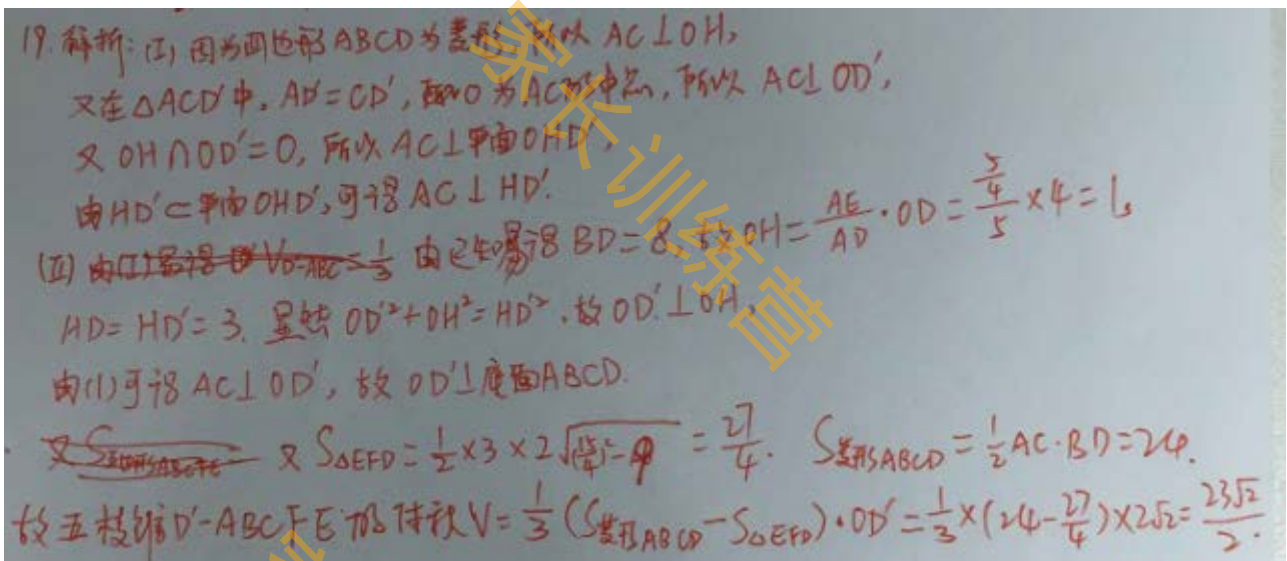 19. 解析: (I) 因为四边形ABCD为菱形, 所以 AC⊥OH,
又在△ACD'中, AD'=CD', 且O为AC的中点, 所以 AC⊥OD',
又 OH∩OD'=O, 所以 AC⊥平面OHD',
由HD'⊂平面OHD', 可得 AC⊥HD'.
(II) 由已知易得 BD=8, 故OH=\frac{AE}{AD}·OD=\frac{\frac{5}{4}}{5}×4=1,
HD=HD'=3. 显然 OD'²+OH²=HD'², 故OD'⊥OH,
由(1)可得 AC⊥OD', 故OD'⊥底面ABCD.
又 S△EFD=\frac{1}{2}×3×2\sqrt{(\frac{15}{4})²-9}=\frac{27}{4}. S菱形ABCD=\frac{1}{2}AC·BD=24.
故五棱锥D'-ABCFE的体积V=\frac{1}{3}(S菱形ABCD-S△EFD)·OD'=\frac{1}{3}×(24-\frac{27}{4})×2√2=\frac{23√2}{2}.
家长训练营